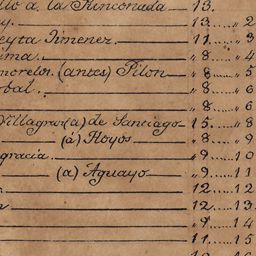 llo á la Rinconada — 13.
y. — 13. „ 2
eyta Jimenez — 11 „ 3
uma. — „ 8 „ 4
morelos. (antes) Pilon — „ 8 „ 5
rbal. — „ 8 „ 6
„ 8 „ 6
Villagran (a) de Santiago — 15. „ 8
(á) Hoyos — „ 8 „ 9
gracia. — „ 9 10
(a) Aguayo — „ 9 11
12 12
n — 12 13.
„ 9 14
11 15